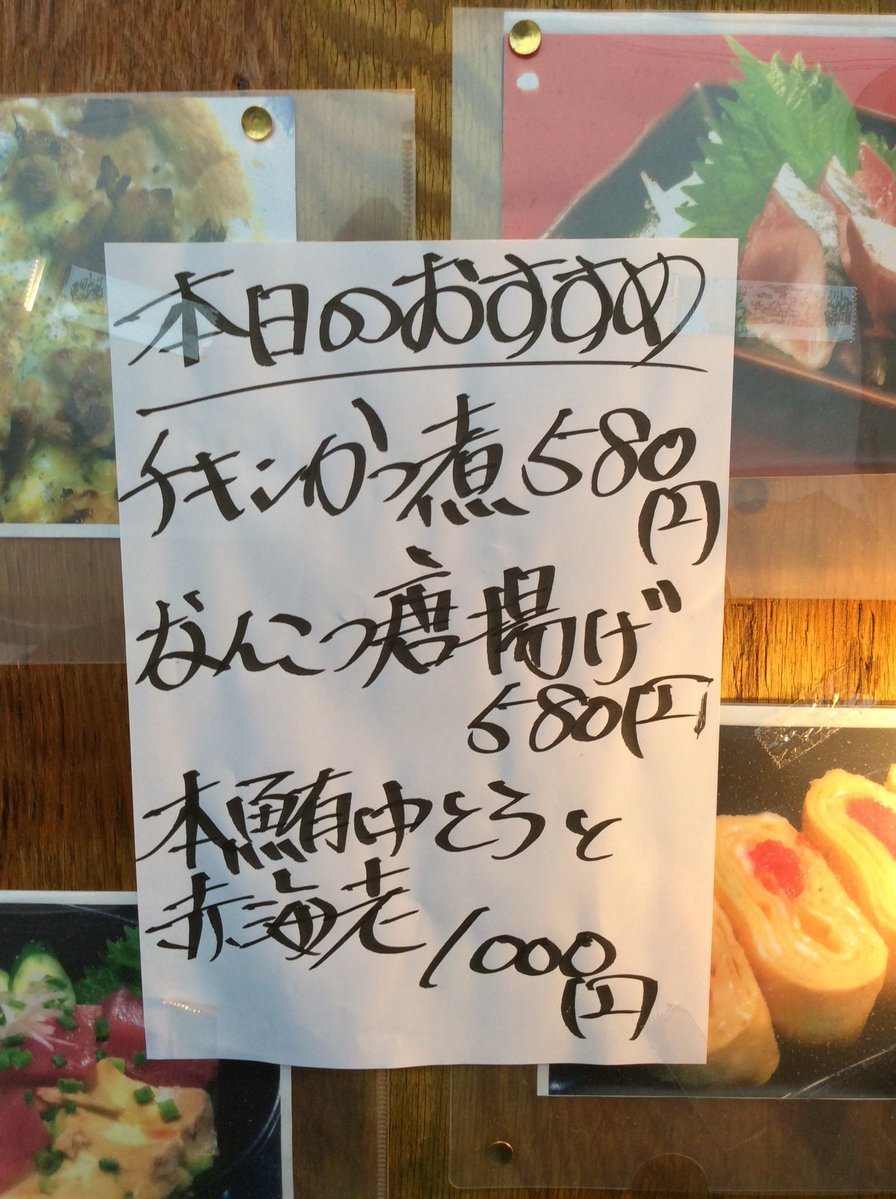 本日のおすすめ
チキンかつ煮580
円
なんこつ唐揚げ
580円
本鮪中とろと
赤海老1000
円